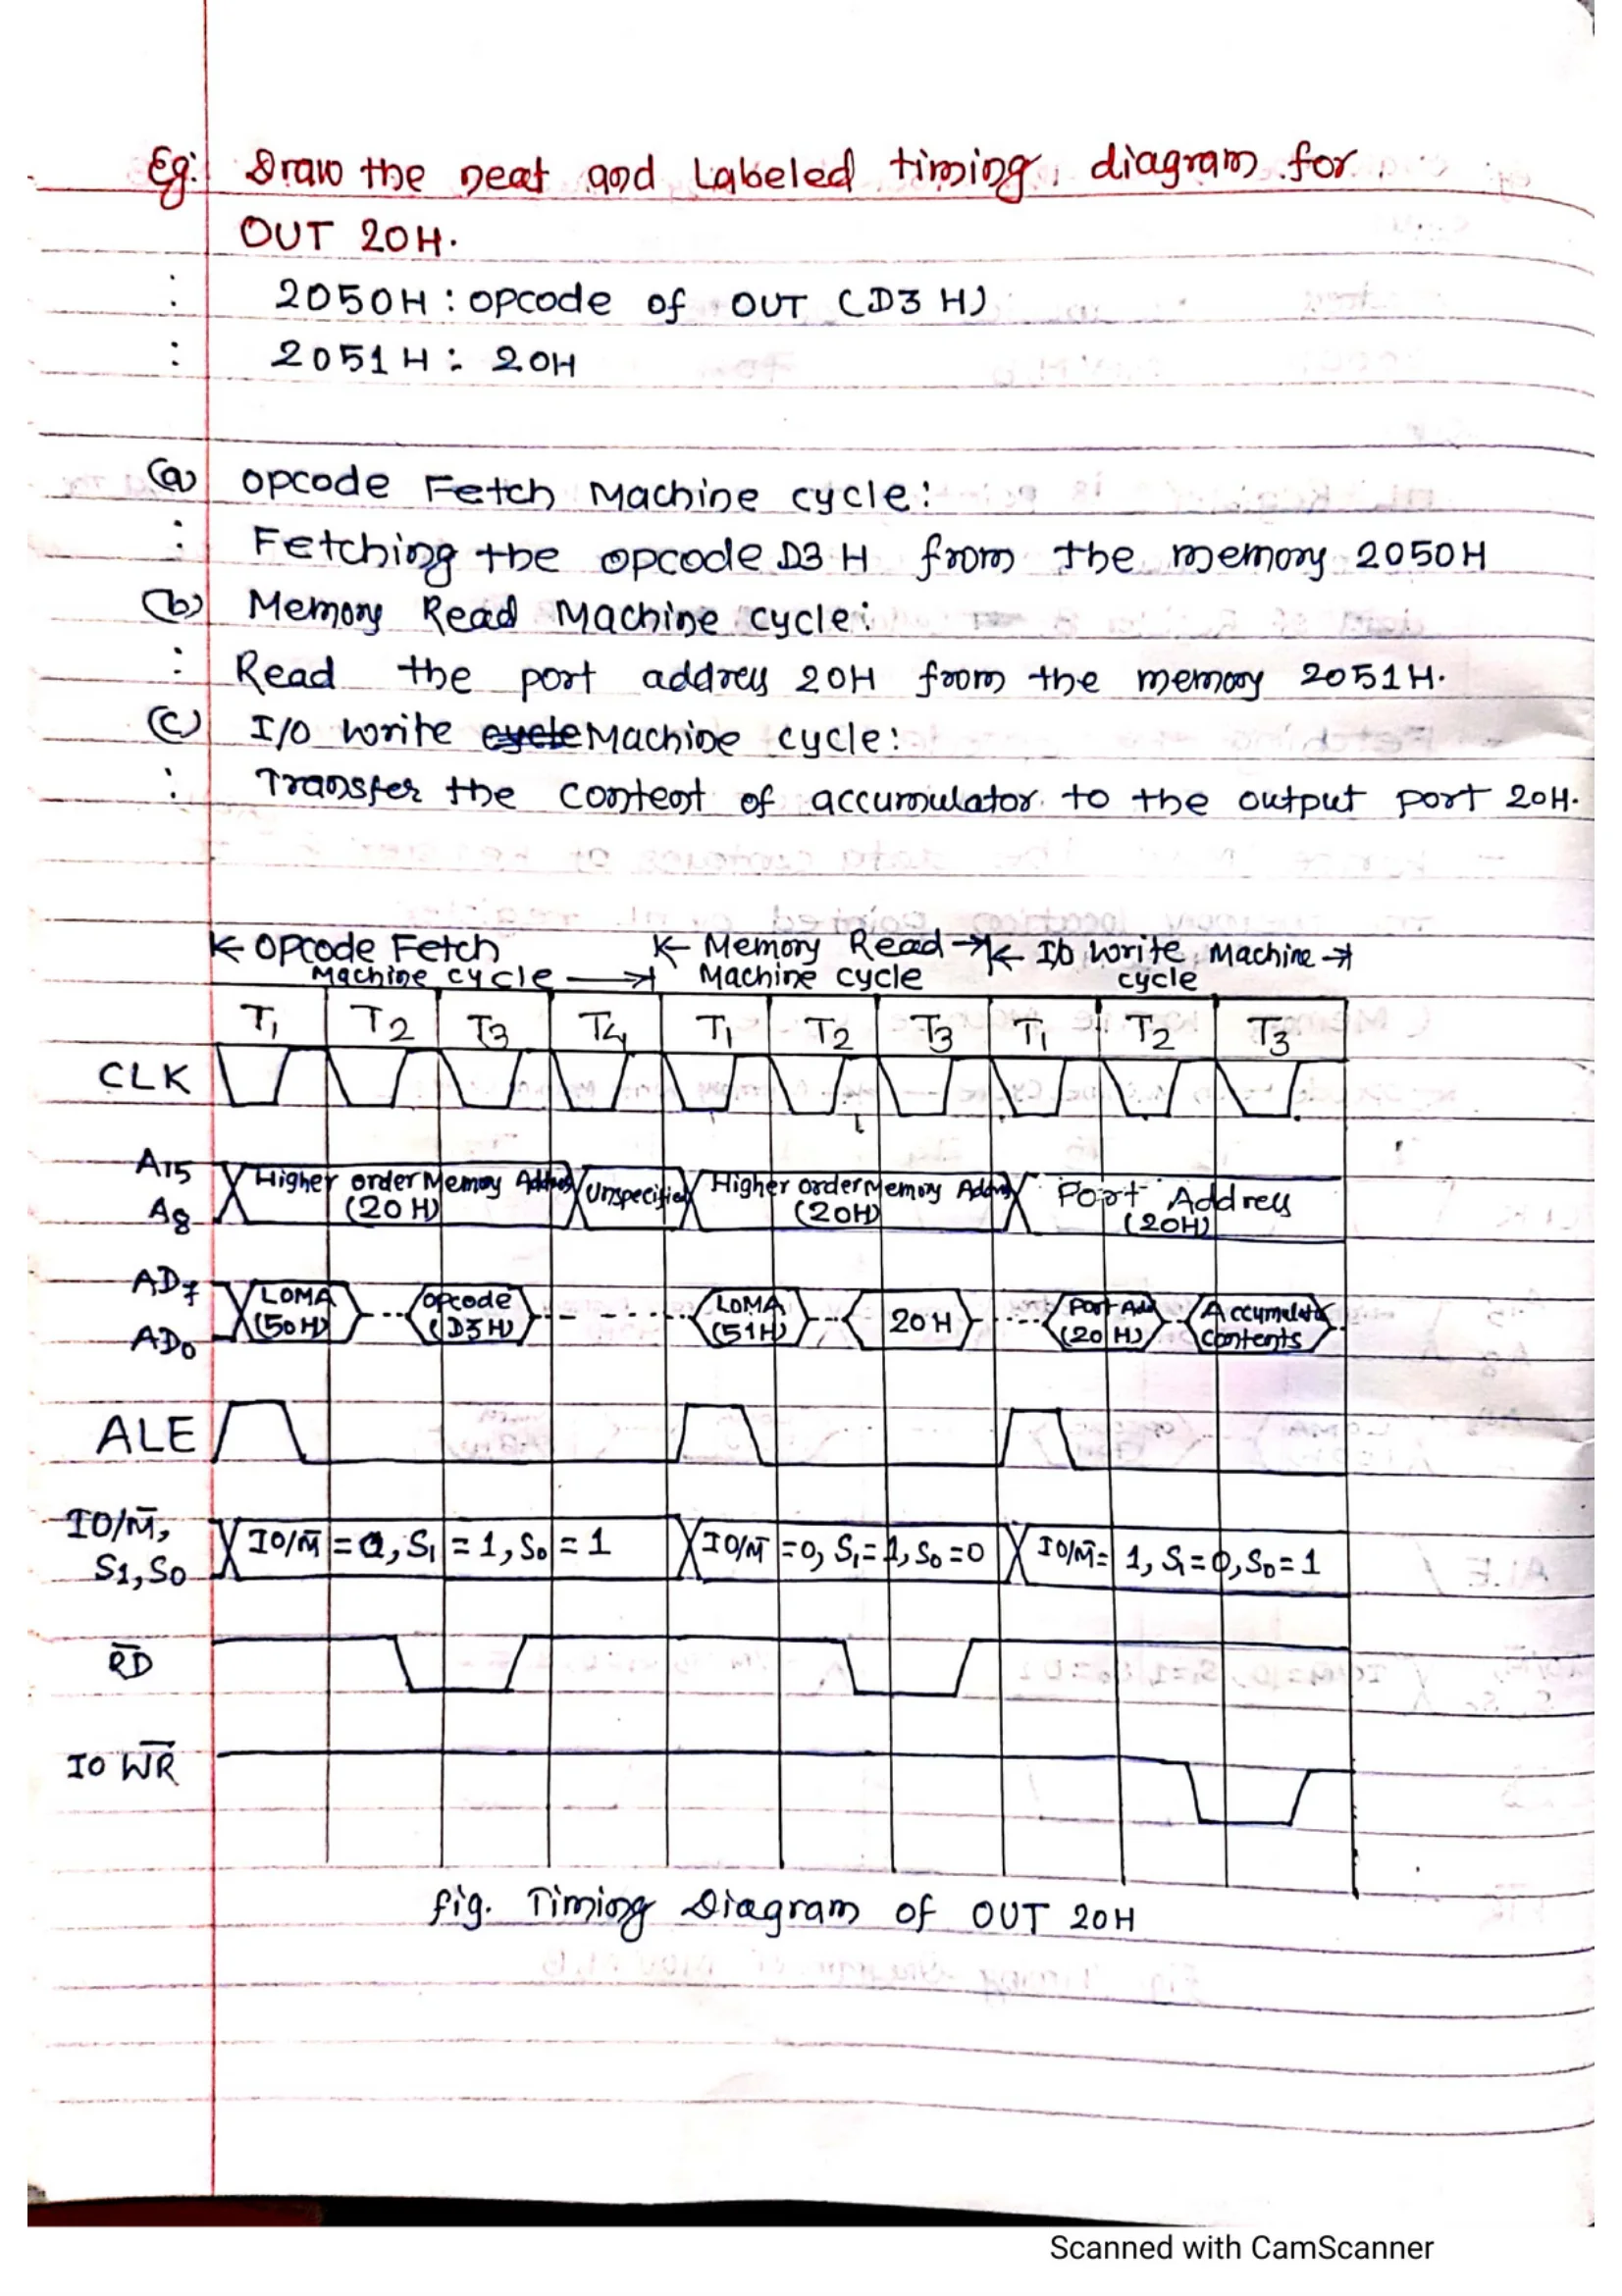 Eg: Draw the neat and Labeled timing diagram for
OUT 20H.
: 2050H : opcode of OUT (D3 H)
: 2051 H : 20H
(a) opcode Fetch Machine cycle:
: Fetching the opcode D3 H from the memory 2050H
(b) Memory Read Machine cycle:
: Read the port address 20H from the memory 2051H.
(c) I/O Write cycle Machine cycle:
: Transfer the content of accumulator to the output port 20H.
Opcode Fetch Machine cycle
Memory Read Machine cycle
I/O Write Machine cycle
T1 T2 T3 T4 T1 T2 T3 T1 T2 T3
CLK
A15
A8
Higher order Memory Address (20H)
Unspecified
Higher order Memory Address (20H)
Port Address (20H)
AD7
AD0
LOMA (50H)
opcode (D3H)
LOMA (51H)
20H
Port Add (20H)
Accumulator Contents
ALE
IO/M̅,
S1, S0
IO/M̅ = 0, S1 = 1, S0 = 1
IO/M̅ = 0, S1 = 1, S0 = 0
IO/M̅ = 1, S1 = 0, S0 = 1
R̅D̅
IO W̅R̅
fig. Timing Diagram of OUT 20H
Scanned with CamScanner